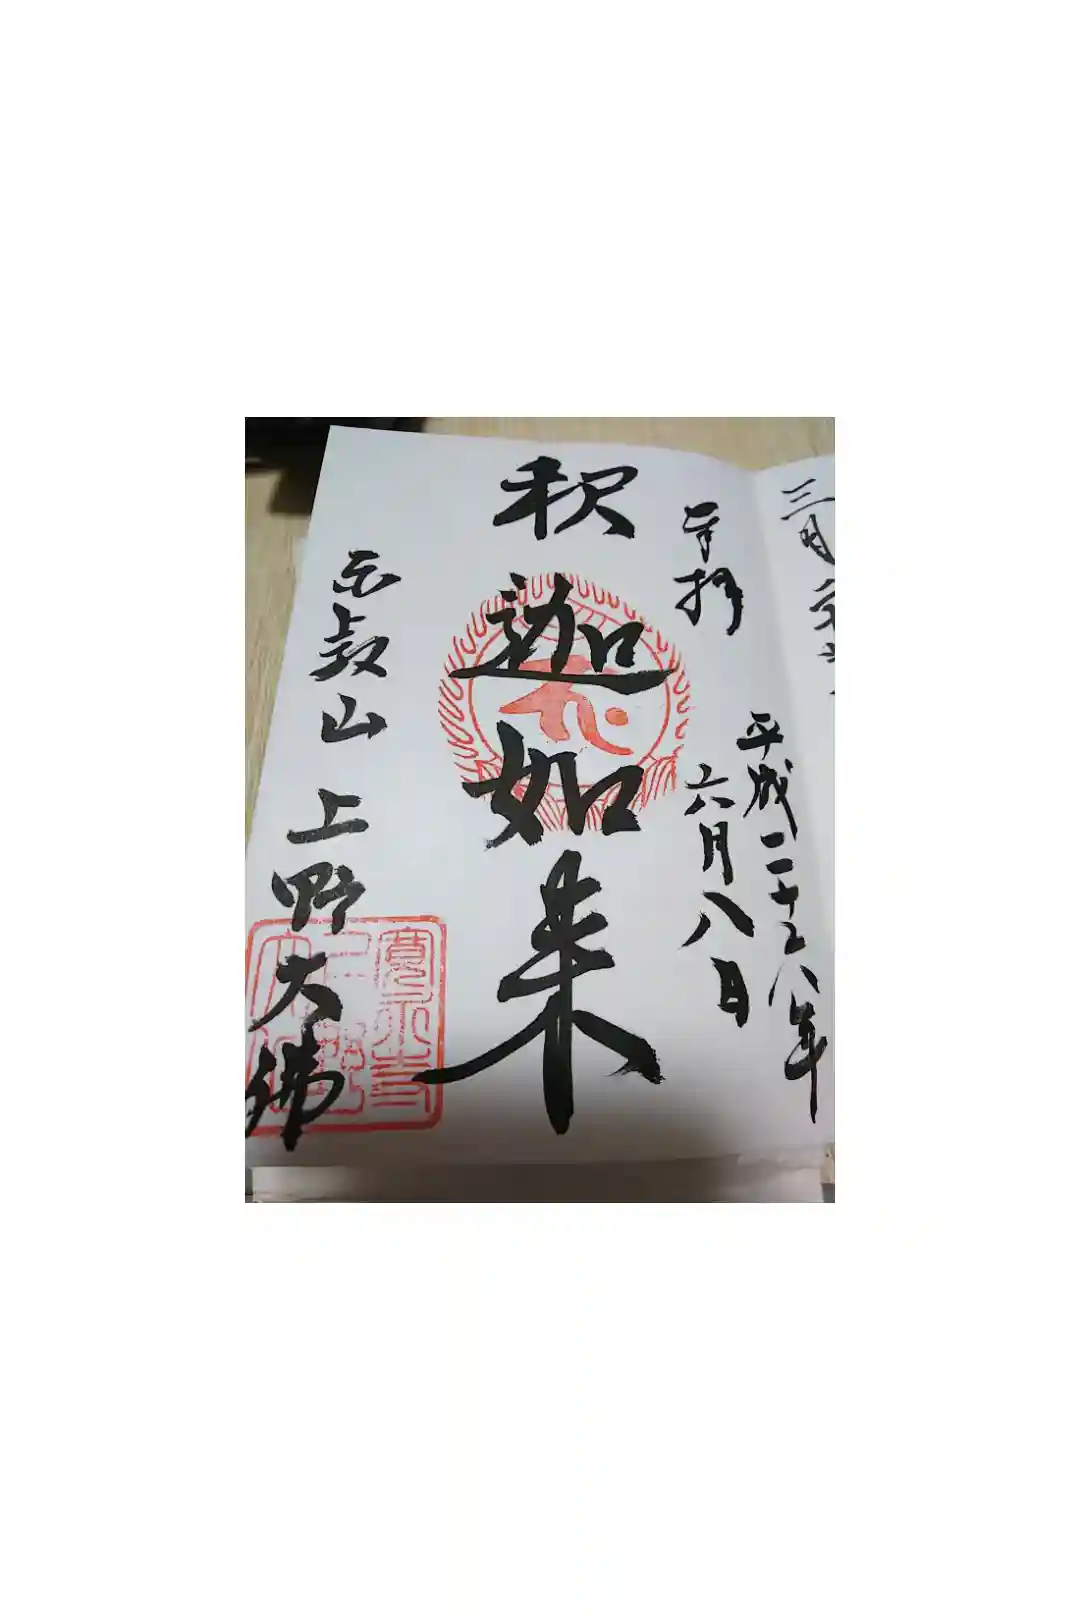 三月
奉拝
平成二十八年
六月八日
釈迦如来
東叡山 上野大佛
寛永寺